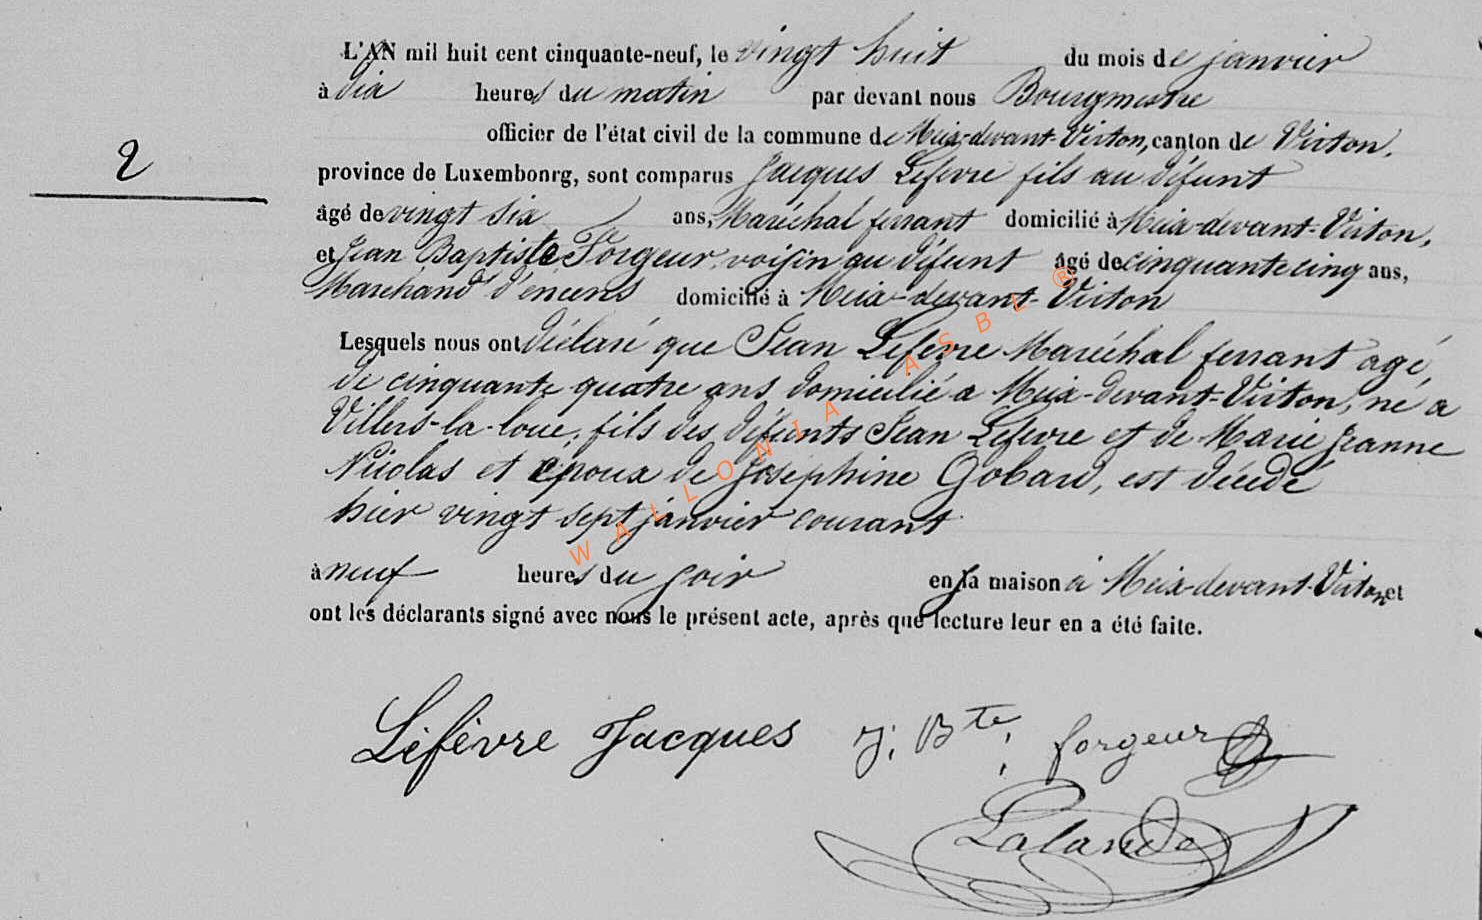 L'AN mil huit cent cinquante-neuf, le vingt huit du mois de janvier
à dix heures du matin par devant nous Bourgmestre
officier de l'état civil de la commune de Meix-devant-Virton, canton de Virton,
2
province de Luxembonrg, sont comparus Jacques Lefevre fils au défunt
âgé de vingt six ans, Maréchal ferrant domicilié à Meix-devant-Virton,
et Jean Baptiste Forgeur, voisin au défunt âgé de cinquante cinq ans,
Marchand d'encens domicilié à Meix-devant-Virton
Lesquels nous ont déclaré que Jean Lefevre Maréchal ferrant agé,
de cinquante quatre ans domicilié a Meix-devant-Virton, né a
Villers-la-loue, fils des défunts Jean Lefevre et de Marie Jeanne
Nicolas et époux de Joséphine Gobard, est décédé
hier vingt sept janvier courant
à neuf heures du soir en sa maison à Meix-devant-Virton et
ont les déclarants signé avec nous le présent acte, après que lecture leur en a été faite.
Lefèvre Jacques J. Bte forgeur
Lalande
WALLONIA ASBL ®